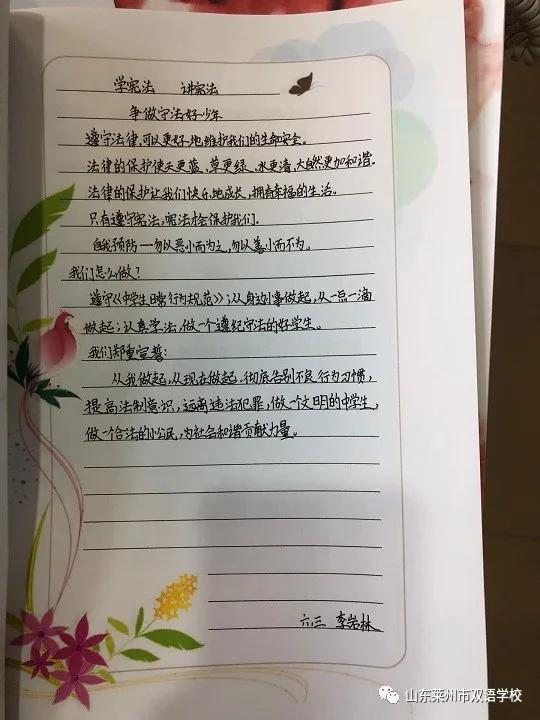 学宪法 讲宪法
争做守法好少年
遵守法律,可以更好地维护我们的生命安全。
法律的保护使天更蓝、草更绿、水更清、大自然更加和谐。
法律的保护让我们快乐地成长,拥有幸福的生活。
只有遵守宪法,宪法才会保护我们。
自我预防—勿以恶小而为之,勿以善小而不为。
我们怎么做?
遵守《中学生日常行为规范》;从身边小事做起,从一点一滴
做起;认真学法,做一个遵纪守法的好学生。
我们郑重宣誓:
从我做起,从现在做起,彻底告别不良行为习惯,
提高法制意识,远离违法犯罪,做一个文明的中学生,
做一个合法的小公民,为社会和谐贡献力量。
六.三 李岩林
山东莱州市双语学校